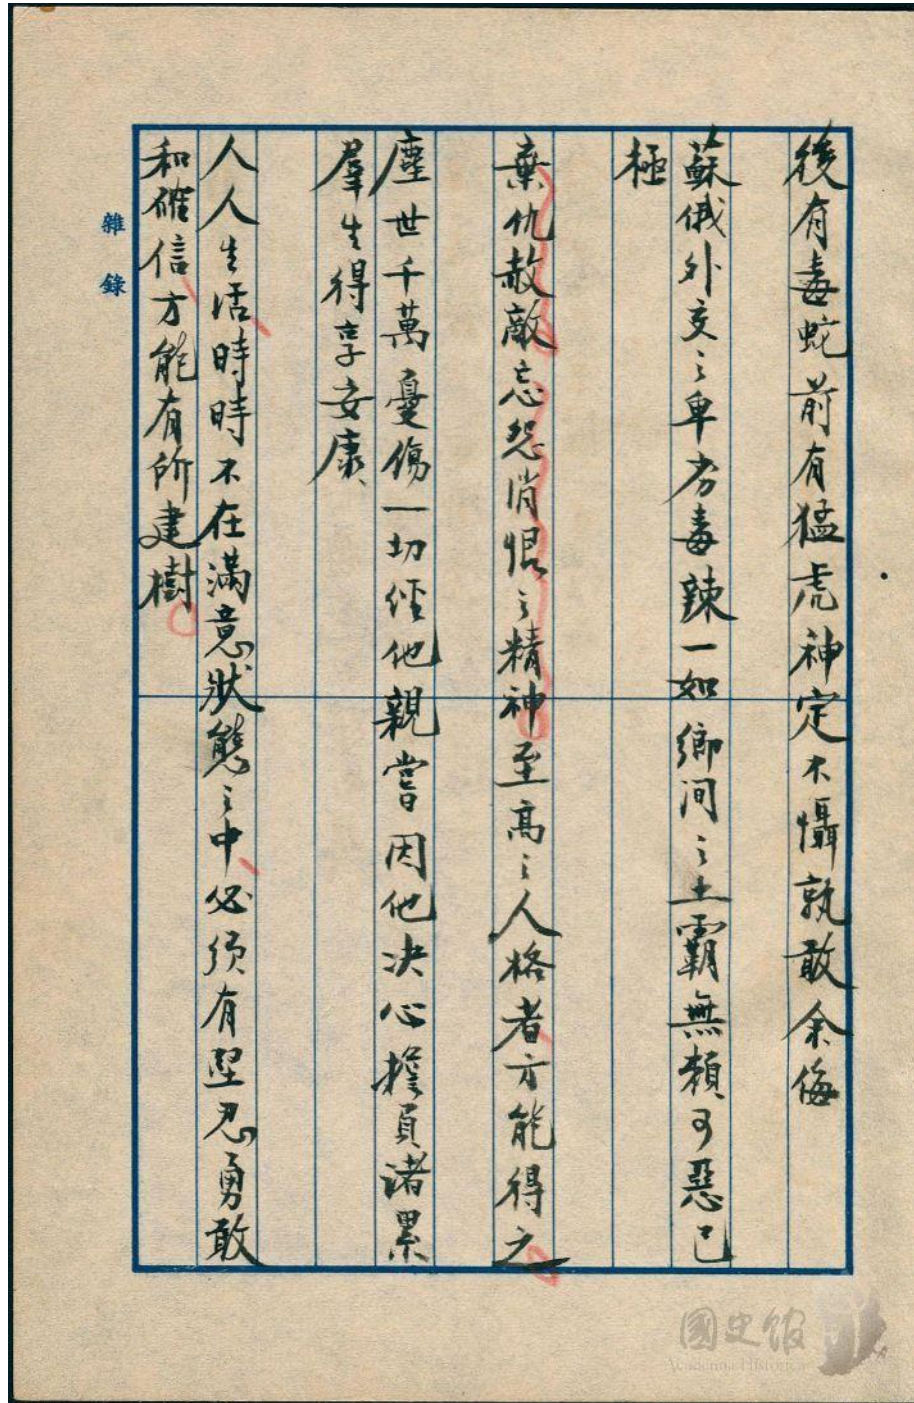 後有毒蛇前有猛虎神定不懾孰敢余侮
蘇俄外交之卑劣毒辣一如鄉間之土霸無賴可惡已
極
棄仇赦敵忘怨消恨之精神至高之人格者方能得之
塵世千萬憂傷一切經他親嘗因他決心擔負諸累
羣生得享安康
人人生活時時不在滿意狀態之中必須有堅忍勇敢
和確信方能有所建樹
雜錄
國史館
Academia Historica